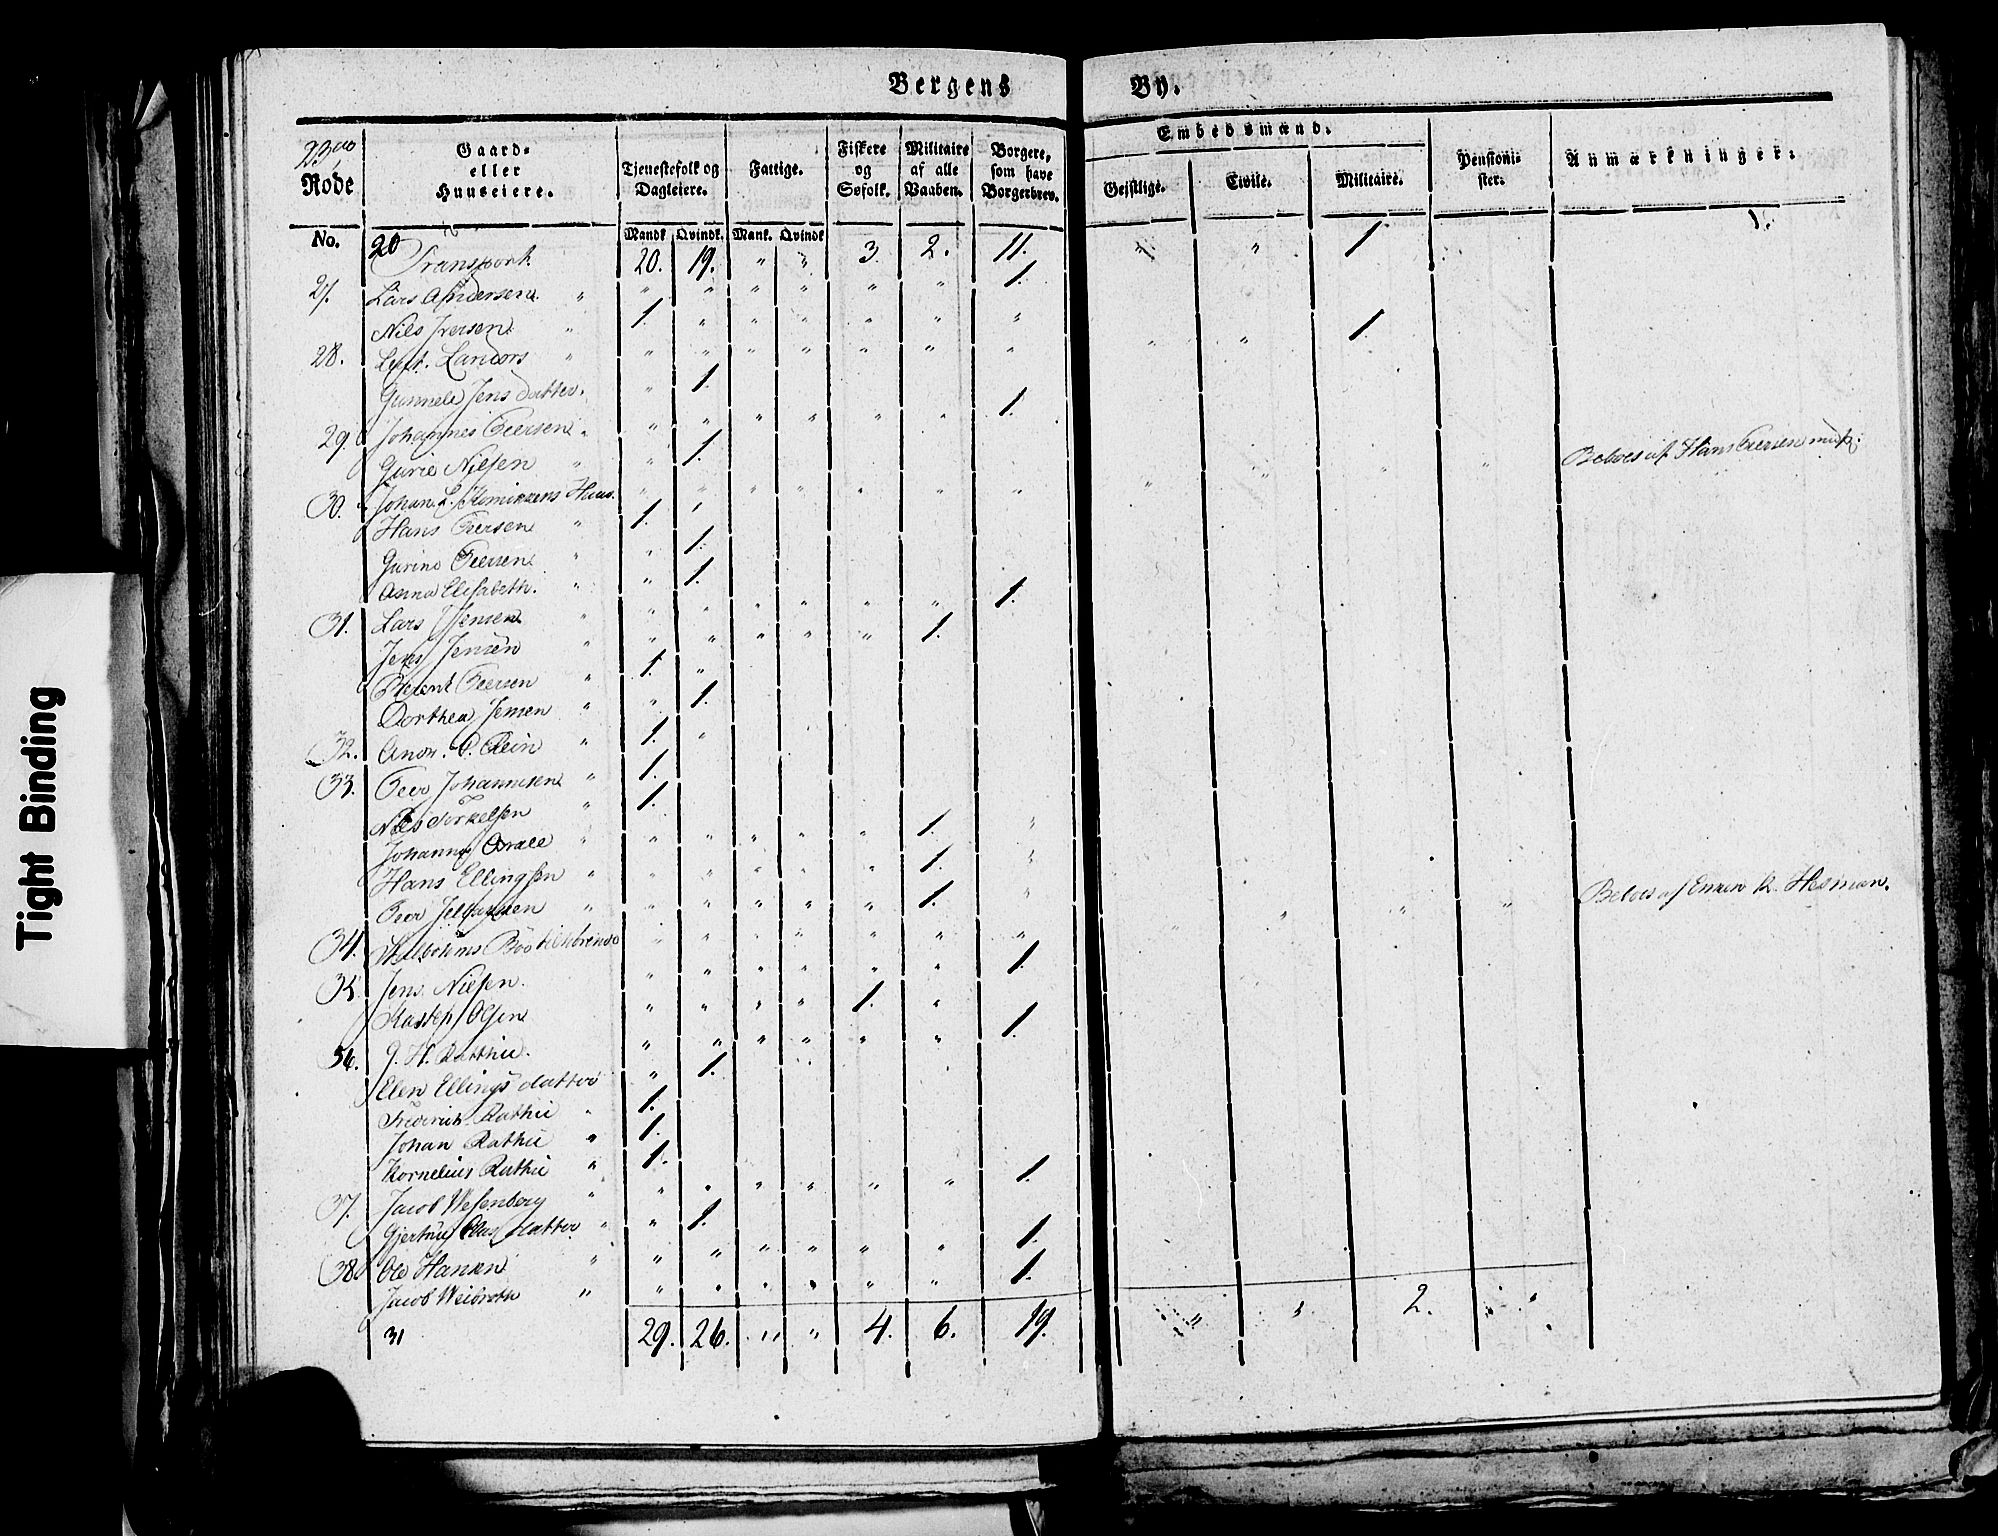 Bergens By.
23de Rode
Gaard- eller Huuseiere.
Tjenestefolk og Dagleiere.
Fattige.
Fiskere og Søfolk.
Militaire af alle Vaaben.
Borgere, som have Borgerbrev.
Embedsmænd.
Geistlige. Civile. Militaire.
Pensioni- ster.
Anmærkninger.
No. Mandk Qvindk. Mank. Qvindk
20 Transport. 20. 19. " " 3. 2. 11. " " 1
27. Lars Andersen " " " " " " " 1.
Nils Iversen " 1. " " " " " "
28. Lieut. Landors " " " " " " " " " " 1
Gunnele Jens datter. " 1.
29. Johannes Peersen " " " " " " " 1.
Gurie Nielsen " " 1.
30. Johan L. Huus. " " " " " " " " " " " Beboes af Hans Peersen
Hans Peersen " 1. "
Gurine Peersen " " 1.
Anna Elisabeth. " " 1.
31. Lars Jensen " " " " " " " 1.
Jens Jensen " " " " " " 1.
Berent Peersen " 1. "
Dorthea Jensen " " 1.
32. Andr. P. Klein " 1. "
33. Peer Johannesen " 1.
Nils Torkelsen " 1.
Johannes " " " " " " 1. "
Hans Ellingsen " " " " " " 1. "
Peer " " " " " " 1. "
34. " " " " " " " " " " " Beboes af K. Herman.
35. Jens Nielsen. " " " " " " 1.
Olsen " " " " 1. "
36. J. H. Rathie. " " " " " " 1.
Elen Ellings datter " 1.
Frederich Rathie " 1.
Johan Rathie " 1.
Kornelius Rathie " 1.
37. Jacob Wesenberg " " " " " " " 1.
Gjertrue Claus datter " " 1.
38 Ole Hansen " " " " " " " 1.
Jacob Weibroth " " " " " " " 1.
31 29. 26. " " 4. 6. 19. " " 2. " "
Tight Binding